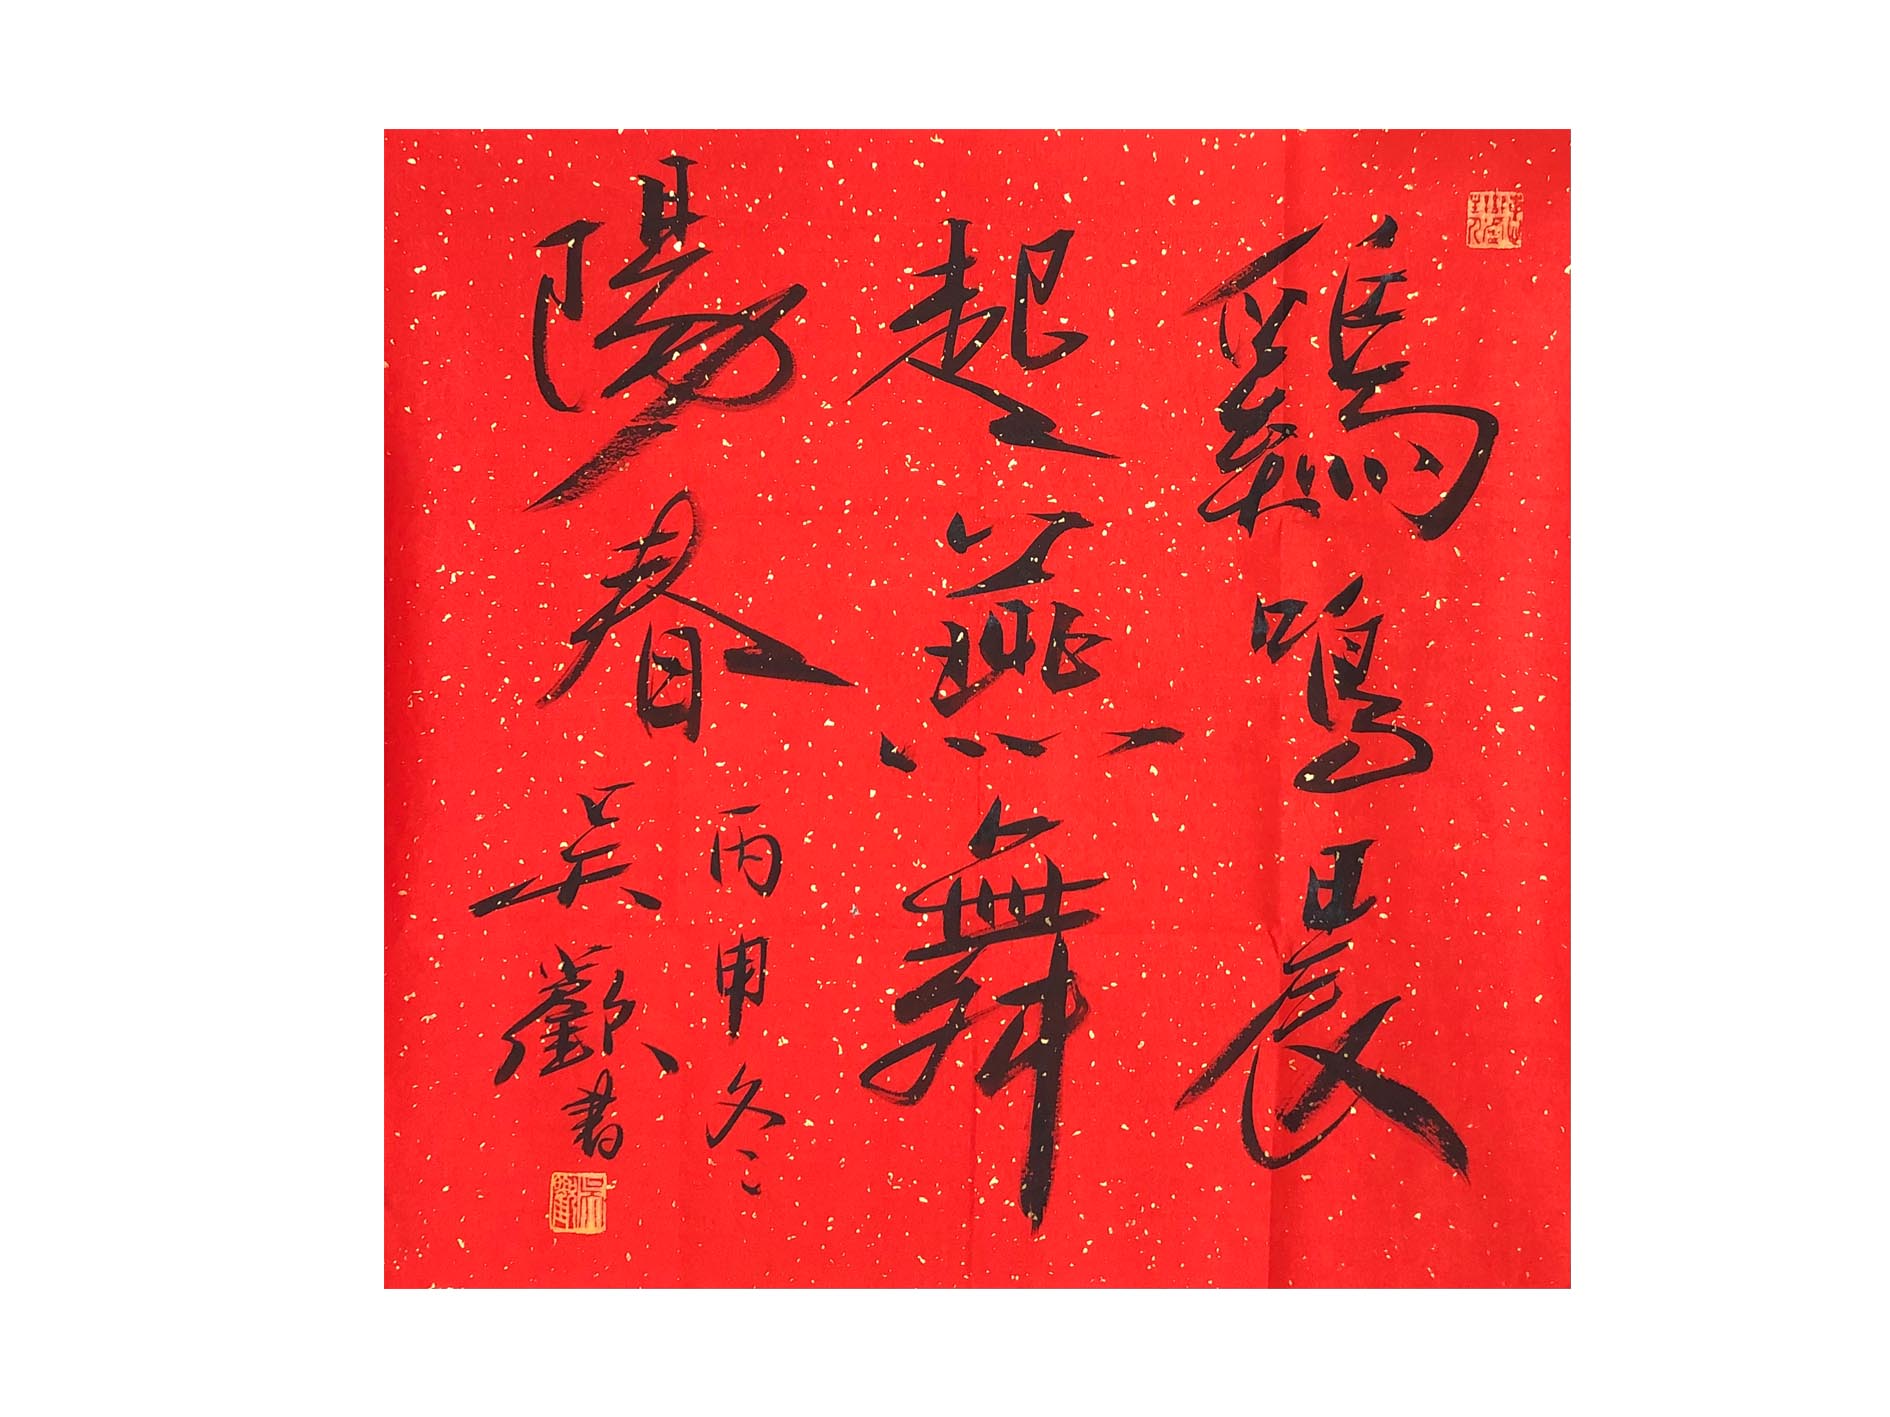 鷄鳴晨
起燕舞
陽春
丙申冬
吳勸書